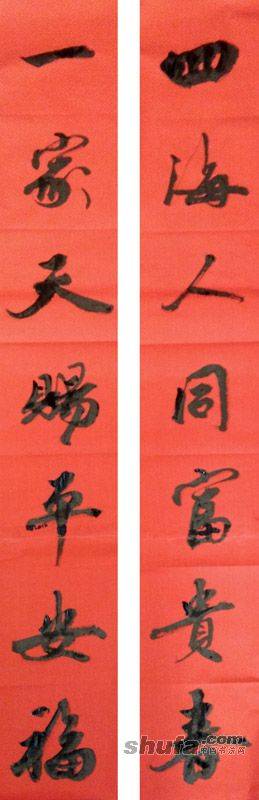 四海人同富贵春
一家天赐平安福
shufa.com
中国书法网